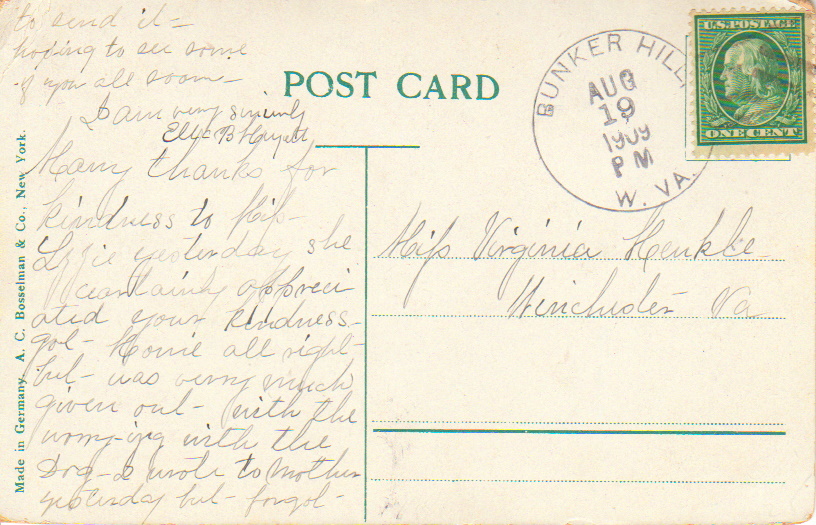 to send it -
hoping to see some
of you all soon -
I am very sincerely
POST CARD
BUNKER HILL,
AUG
19
1909
PM
W. VA.
U.S. POSTAGE
ONE CENT
Made in Germany. A. C. Bosselman & Co., New York.
Many thanks for
kindness to Miss
Lizzie yesterday she
certainly appreci
ated your kindness -
got - Home all right -
but - was very much
given out - with the
worrying with the
Dog - I wrote to Mother
yesterday but - forgot -
Miss Virginia Henkle
Winchester Va